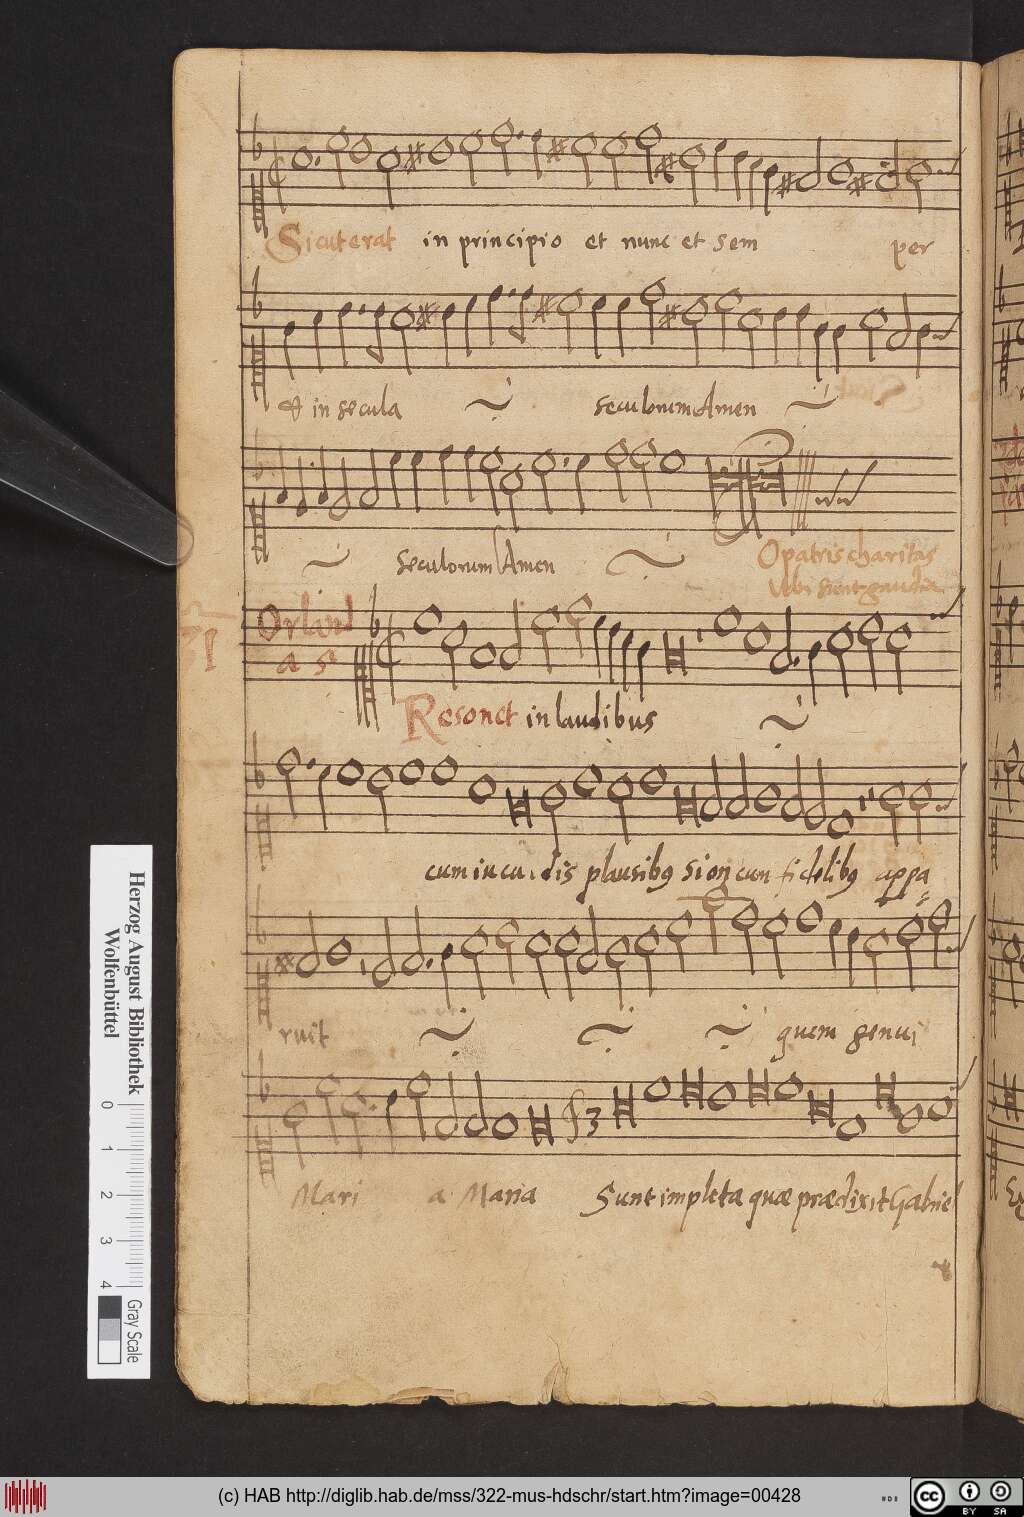 Sicut erat in principio et nunc et sem per
& in secula seculorum Amen
seculorum Amen
O patris charitas
Vbi sunt gaudia
Orland
a 5
Resonet in laudibus
cum iucu dis plausibg sion cun fidelibg appa
ruit quem genui
Mari a Maria Sunt impleta quæ prædixit Gabriel
Herzog August Bibliothek
Wolfenbüttel
0 1 2 3 4
Gray Scale
(c) HAB http://diglib.hab.de/mss/322-mus-hdschr/start.htm?image=00428
cc BY SA